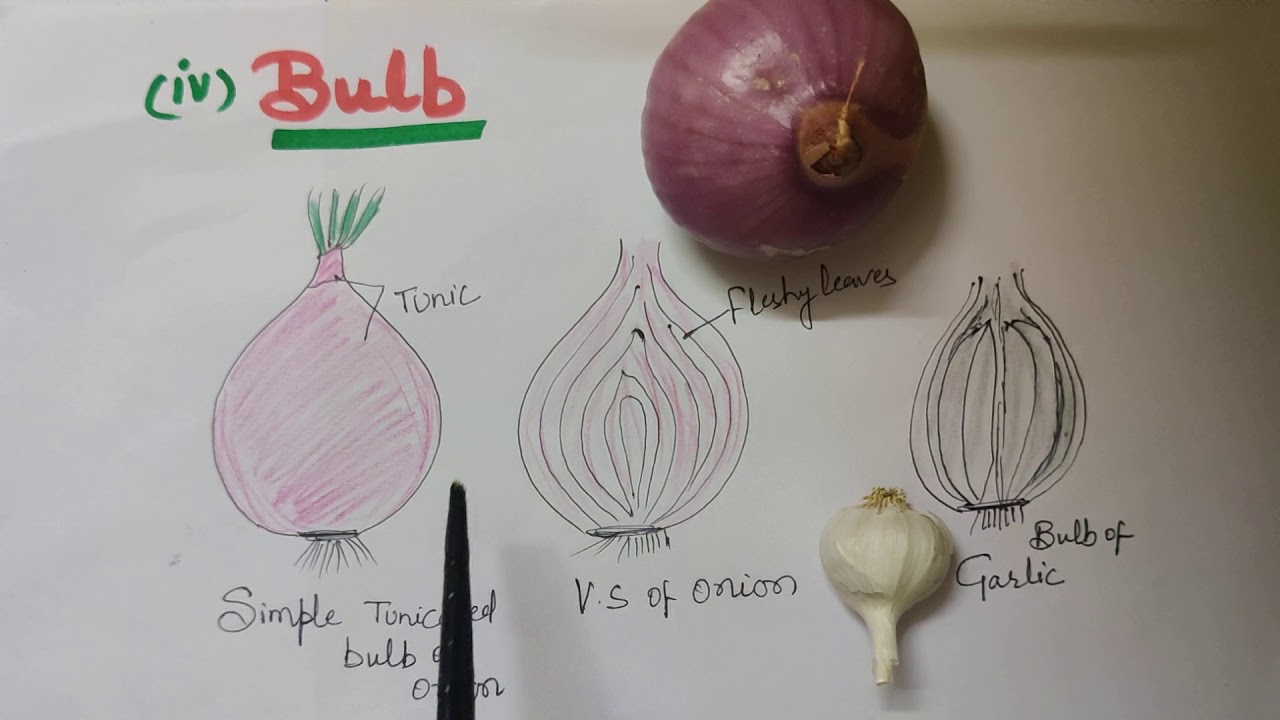 (iv) Bulb
Tunic
Fleshy leaves
Simple
bulb
V.S of onion
Bulb of
Garlic